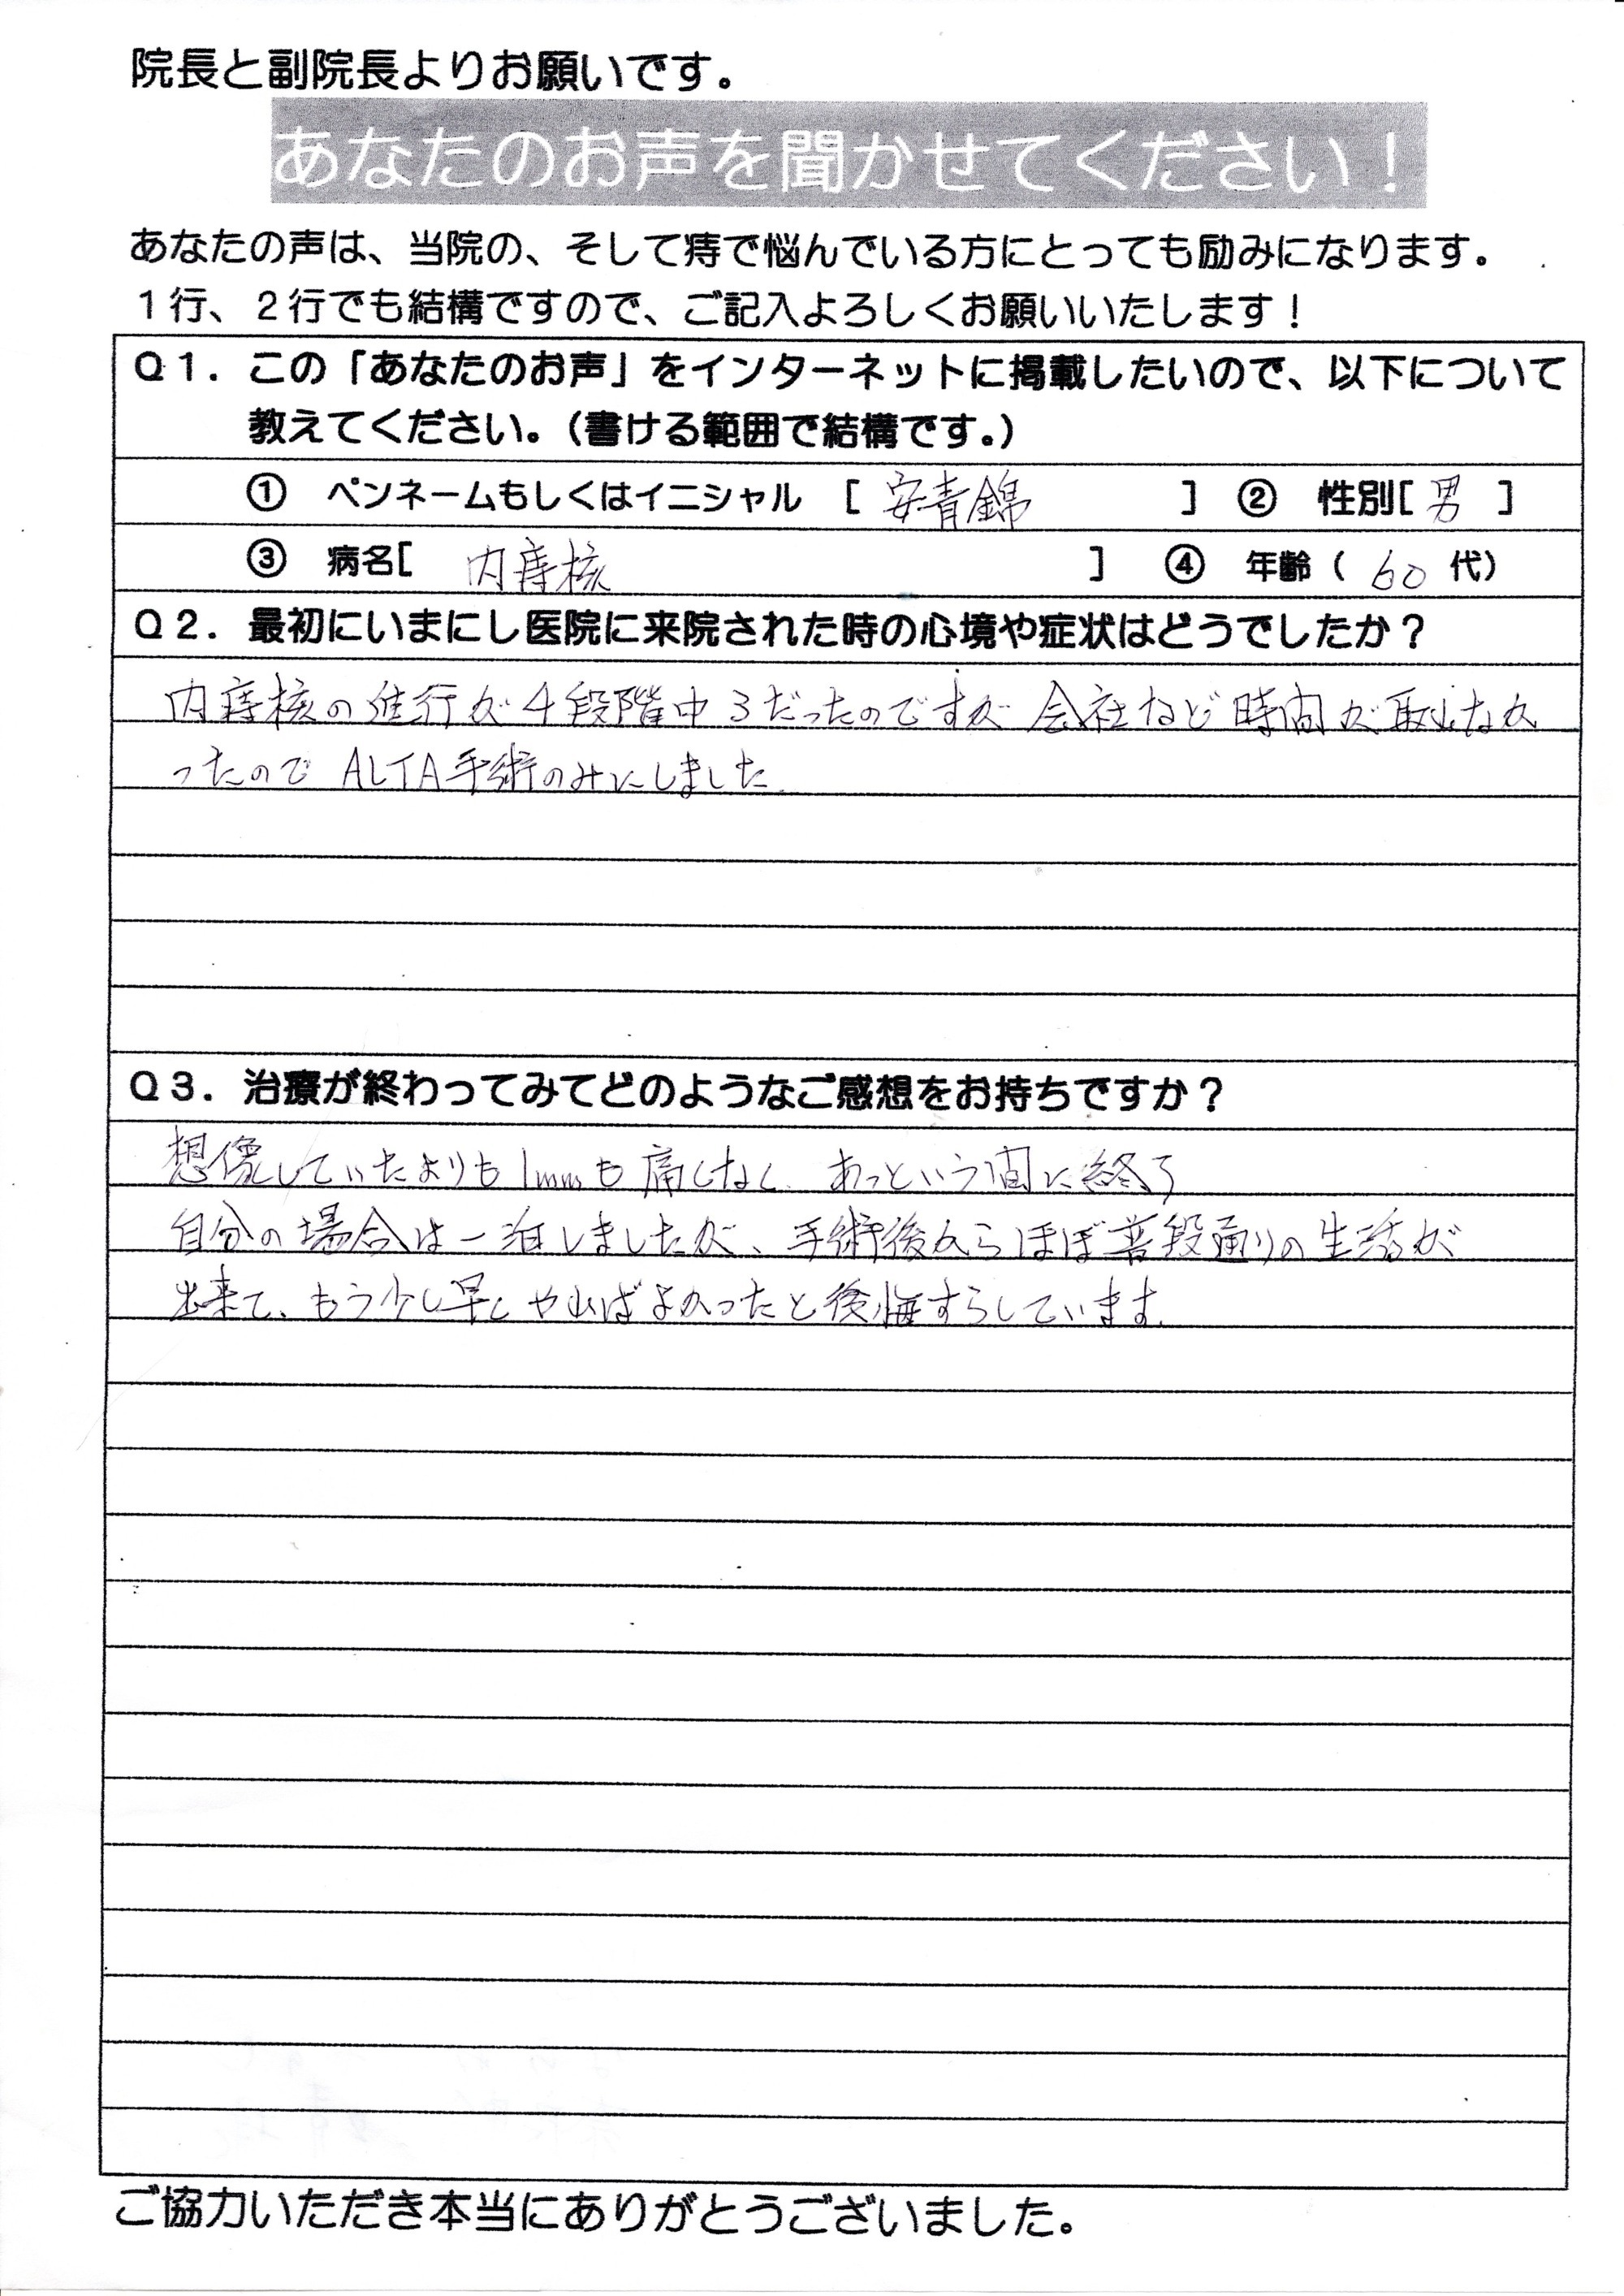 院長と副院長よりお願いです。
あなたのお声を聞かせてください！
あなたの声は、当院の、そして痔で悩んでいる方にとっても励みになります。
１行、２行でも結構ですので、ご記入よろしくお願いいたします！
Ｑ１．この「あなたのお声」をインターネットに掲載したいので、以下について
教えてください。（書ける範囲で結構です。）
① ペンネームもしくはイニシャル [ 安青錦 ] ② 性別[ 男 ]
③ 病名[ 内痔核 ] ④ 年齢（ 60 代）
Ｑ２．最初にいまにし医院に来院された時の心境や症状はどうでしたか？
内痔核の進行が４段階中３だったのですが 会社など時間が取れなか
ったので ALTA手術のみにしました.
Ｑ３．治療が終わってみてどのようなご感想をお持ちですか？
想像していたよりも 1mmも痛くなく、あっという間に終了
自分の場合は一泊しましたが、手術後からほぼ普段通りの生活が
出来て、もう少し早くやればよかったと後悔すらしています.
ご協力いただき本当にありがとうございました。